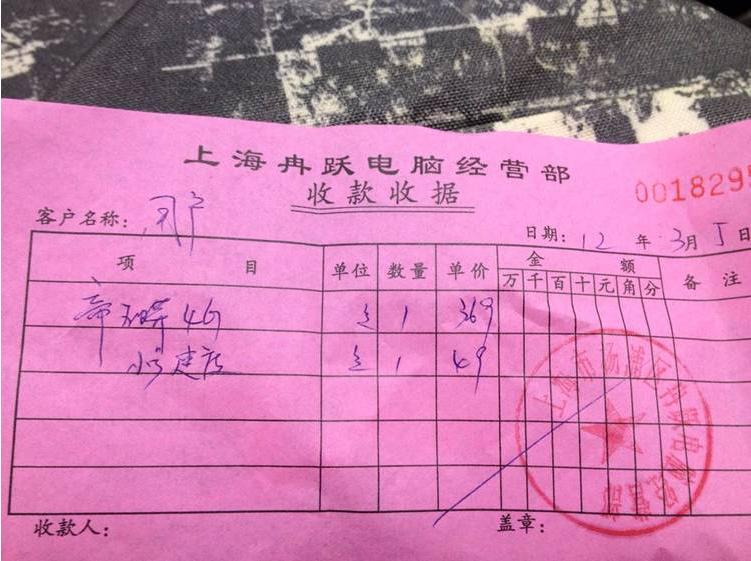 上海冉跃电脑经营部
收款收据
0018295
客户名称: 用户
日期: 12 年 3月 5日
项 目 单位 数量 单价 金 额 备 注
万 千 百 十 元 角 分
4G 1 369
1 49
上海市杨浦区冉跃电脑经营部
收款人: 盖章: